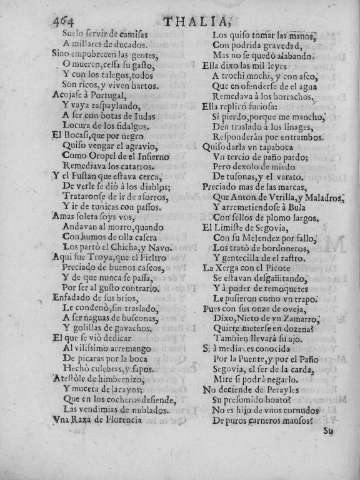 464 THALIA,
Suelo servir de camisas
A millares de ducados.
Sino empobrecen las gentes,
O mueren, cessa su gasto,
Y con los talegos, todos
Son ricos, y viven hartos.
Acojase à Portugal,
Y vaya raspaylando,
A ser con botas de Iudas
Locura de los fidalgos.
El Bocasi, que por negro
Quiso vengar el agravio,
Como Oropel de el Infierno
Remediava los catarros.
Y el Fustan que estava cerca,
De verle se diò à los diablos;
Trataronse de ir de aforros,
Y ir de tonicas con passos.
Amas soleta soys vos,
Andavan al morro, quando
Con humos de olla casera
Los partò el Chicha, y Navo.
Aqui fue Troya, que el Fieltro
Preciado de buenos cascos,
Y de que nunca se passa,
Por ser al gusto contrario.
Enfadado de sus brios,
Le condenò, sin traslado,
A ser naguas de busconas,
Y golillas de gavachos.
El que se viò dedicar
Al vilissimo arremango
De picaras por la boca
Hechò culebras, y sapos.
de himbernizo,
Y muceta de lacayos;
Que en los cocheros defiende,
Las vendimias de nublados.
Vna Raxa de Florencia
Los quiso tomar las manos,
Con podrida gravedad,
Mas no se quedò alabando.
Ella dixo las mil leyes
A trochi mochi, y con asco,
Que en ofenderse de el agua
Remedava à los borrachos.
Ella replicò furiosa:
Si pierdo, porque me mancho,
Den traslado à los linages,
Responderàn por entrambos.
Quiso darla vn tapaboca
Vn tercio de paño pardo;
Pero dexolo de miedo
De tusonas, y el varato.
Preciado mas de las marcas,
Que Anton de Vtrilla, y Maladros,
Y arremetiendose à Bula
Con sellos de plomo largos,
El Limiste de Segovia,
Con su Melendez por fallo,
Los tratò de bordoneros,
Y gentecilla de el rastro.
La Xerga con el Picote
Se estavan desgañitando,
Y à poder de remoquetes
Le pusieron como vn trapo.
Pues con sus onze de oveja,
Dixo, Nieto de vn Zamarro,
Quiere meterse en dozena?
Tambien llevarà su ajo.
Si à media es conocida
Por la Puente, y por el Paño
Segovia, el ser de la carda,
Mire si podrà negarlo.
No deciende de Perayles
Su presumido boato?
No es hija de vnos cornudos
De puros carneros mansos?
Su